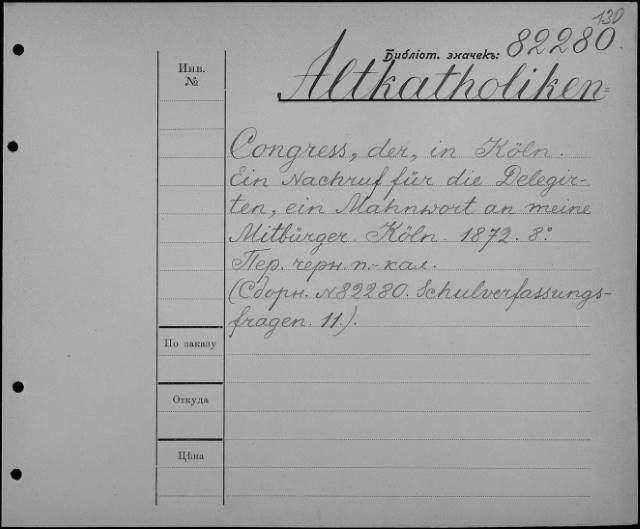 130
Библіот. значекъ: 82280.
Инв. №
Altkatholiken=
Congress, der, in Köln.
Ein Nachruf für die Delegir-
ten, ein Mahnwort an meine
Mitbürger. Köln. 1872. 8°
Пер. черн. п.-кал.
(Сборн. №82280. Schulverfassungs-
fragen. 11.).
По заказу
Откуда
Цѣна